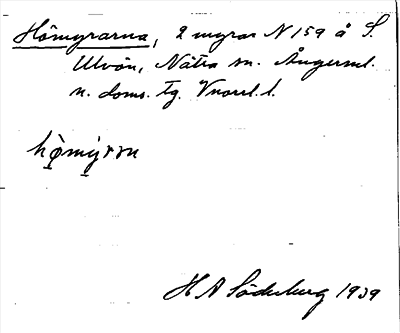 Hömyrarna, 2 myrar N 159 å S.
Ulvön, Nätra sn. Ångerml.
n. doms. tg. Vnorrl. l.
hömyrɴ
H A Söderberg 1939